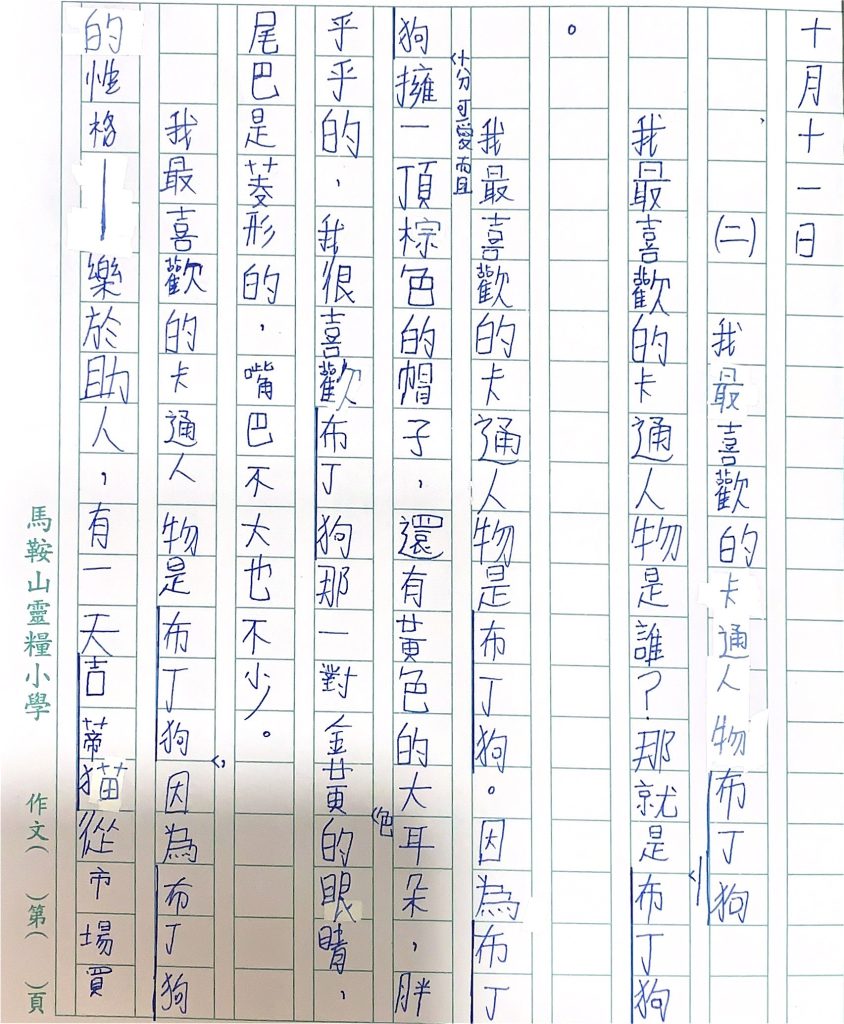 十月十一日
(二)我最喜歡的卡通人物—布丁狗
我最喜歡的卡通人物是誰？那就是布丁狗
。
我最喜歡的卡通人物是布丁狗。因為布丁
狗十分可愛而且擁一頂棕色的帽子，還有黃色的大耳朵，胖
乎乎的，我很喜歡布丁狗那一對金黃色的眼睛，
尾巴是菱形的，嘴巴不大也不少。
我最喜歡的卡通人物是布丁狗，因為布丁狗
的性格—樂於助人，有一天吉蒂猫從市場買
馬鞍山靈糧小學 作文( )第( )頁